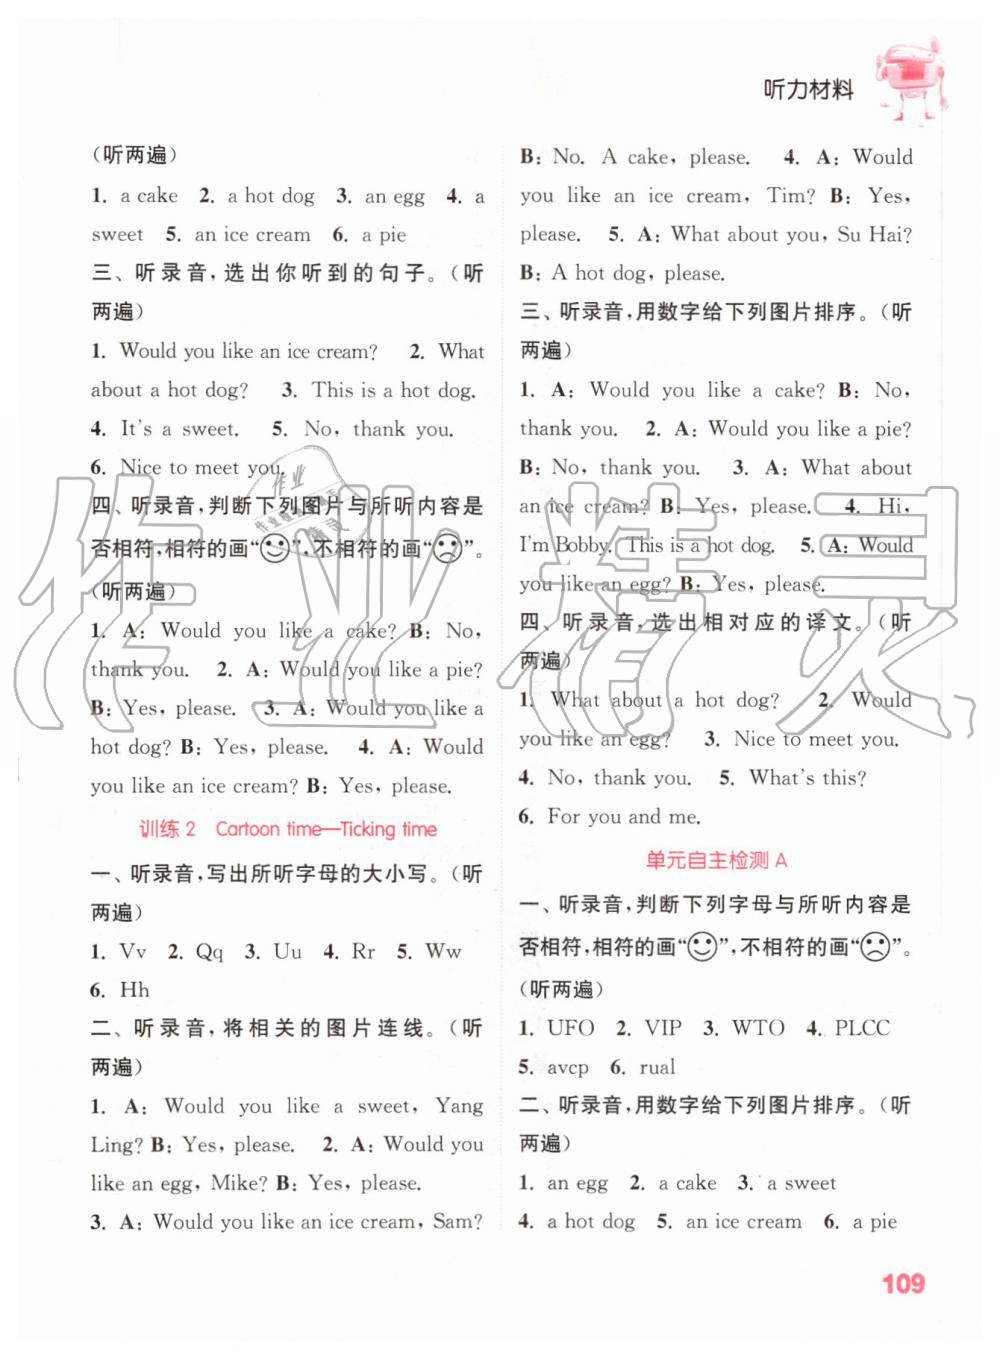 听力材料
(听两遍)
1. a cake 2. a hot dog 3. an egg 4. a
sweet 5. an ice cream 6. a pie
三、听录音,选出你听到的句子。(听
两遍)
1. Would you like an ice cream? 2. What
about a hot dog? 3. This is a hot dog.
4. It's a sweet. 5. No, thank you.
6. Nice to meet you.
四、听录音,判断下列图片与所听内容是
否相符,相符的画“☺”,不相符的画“☹”。
(听两遍)
1. A: Would you like a cake? B: No,
thank you. 2. A: Would you like a pie?
B: Yes, please. 3. A: Would you like a
hot dog? B: Yes, please. 4. A: Would
you like an ice cream? B: Yes, please.
训练2 Cartoon time—Ticking time
一、听录音,写出所听字母的大小写。(听
两遍)
1. Vv 2. Qq 3. Uu 4. Rr 5. Ww
6. Hh
二、听录音,将相关的图片连线。(听
两遍)
1. A: Would you like a sweet, Yang
Ling? B: Yes, please. 2. A: Would you
like an egg, Mike? B: Yes, please.
3. A: Would you like an ice cream, Sam?
B: No. A cake, please. 4. A: Would
you like an ice cream, Tim? B: Yes,
please. 5. A: What about you, Su Hai?
B: A hot dog, please.
三、听录音,用数字给下列图片排序。(听
两遍)
1. A: Would you like a cake? B: No,
thank you. 2. A: Would you like a pie?
B: No, thank you. 3. A: What about
an ice cream? B: Yes, please. 4. Hi,
I'm Bobby. This is a hot dog. 5. A: Would
you like an egg? B: Yes, please.
四、听录音,选出相对应的译文。(听
两遍)
1. What about a hot dog? 2. Would
you like an egg? 3. Nice to meet you.
4. No, thank you. 5. What's this?
6. For you and me.
单元自主检测 A
一、听录音,判断下列字母与所听内容是
否相符,相符的画“☺”,不相符的画“☹”。
(听两遍)
1. UFO 2. VIP 3. WTO 4. PLCC
5. avcp 6. rual
二、听录音,用数字给下列图片排序。(听
两遍)
1. an egg 2. a cake 3. a sweet
4. a hot dog 5. an ice cream 6. a pie
109
作业精灵